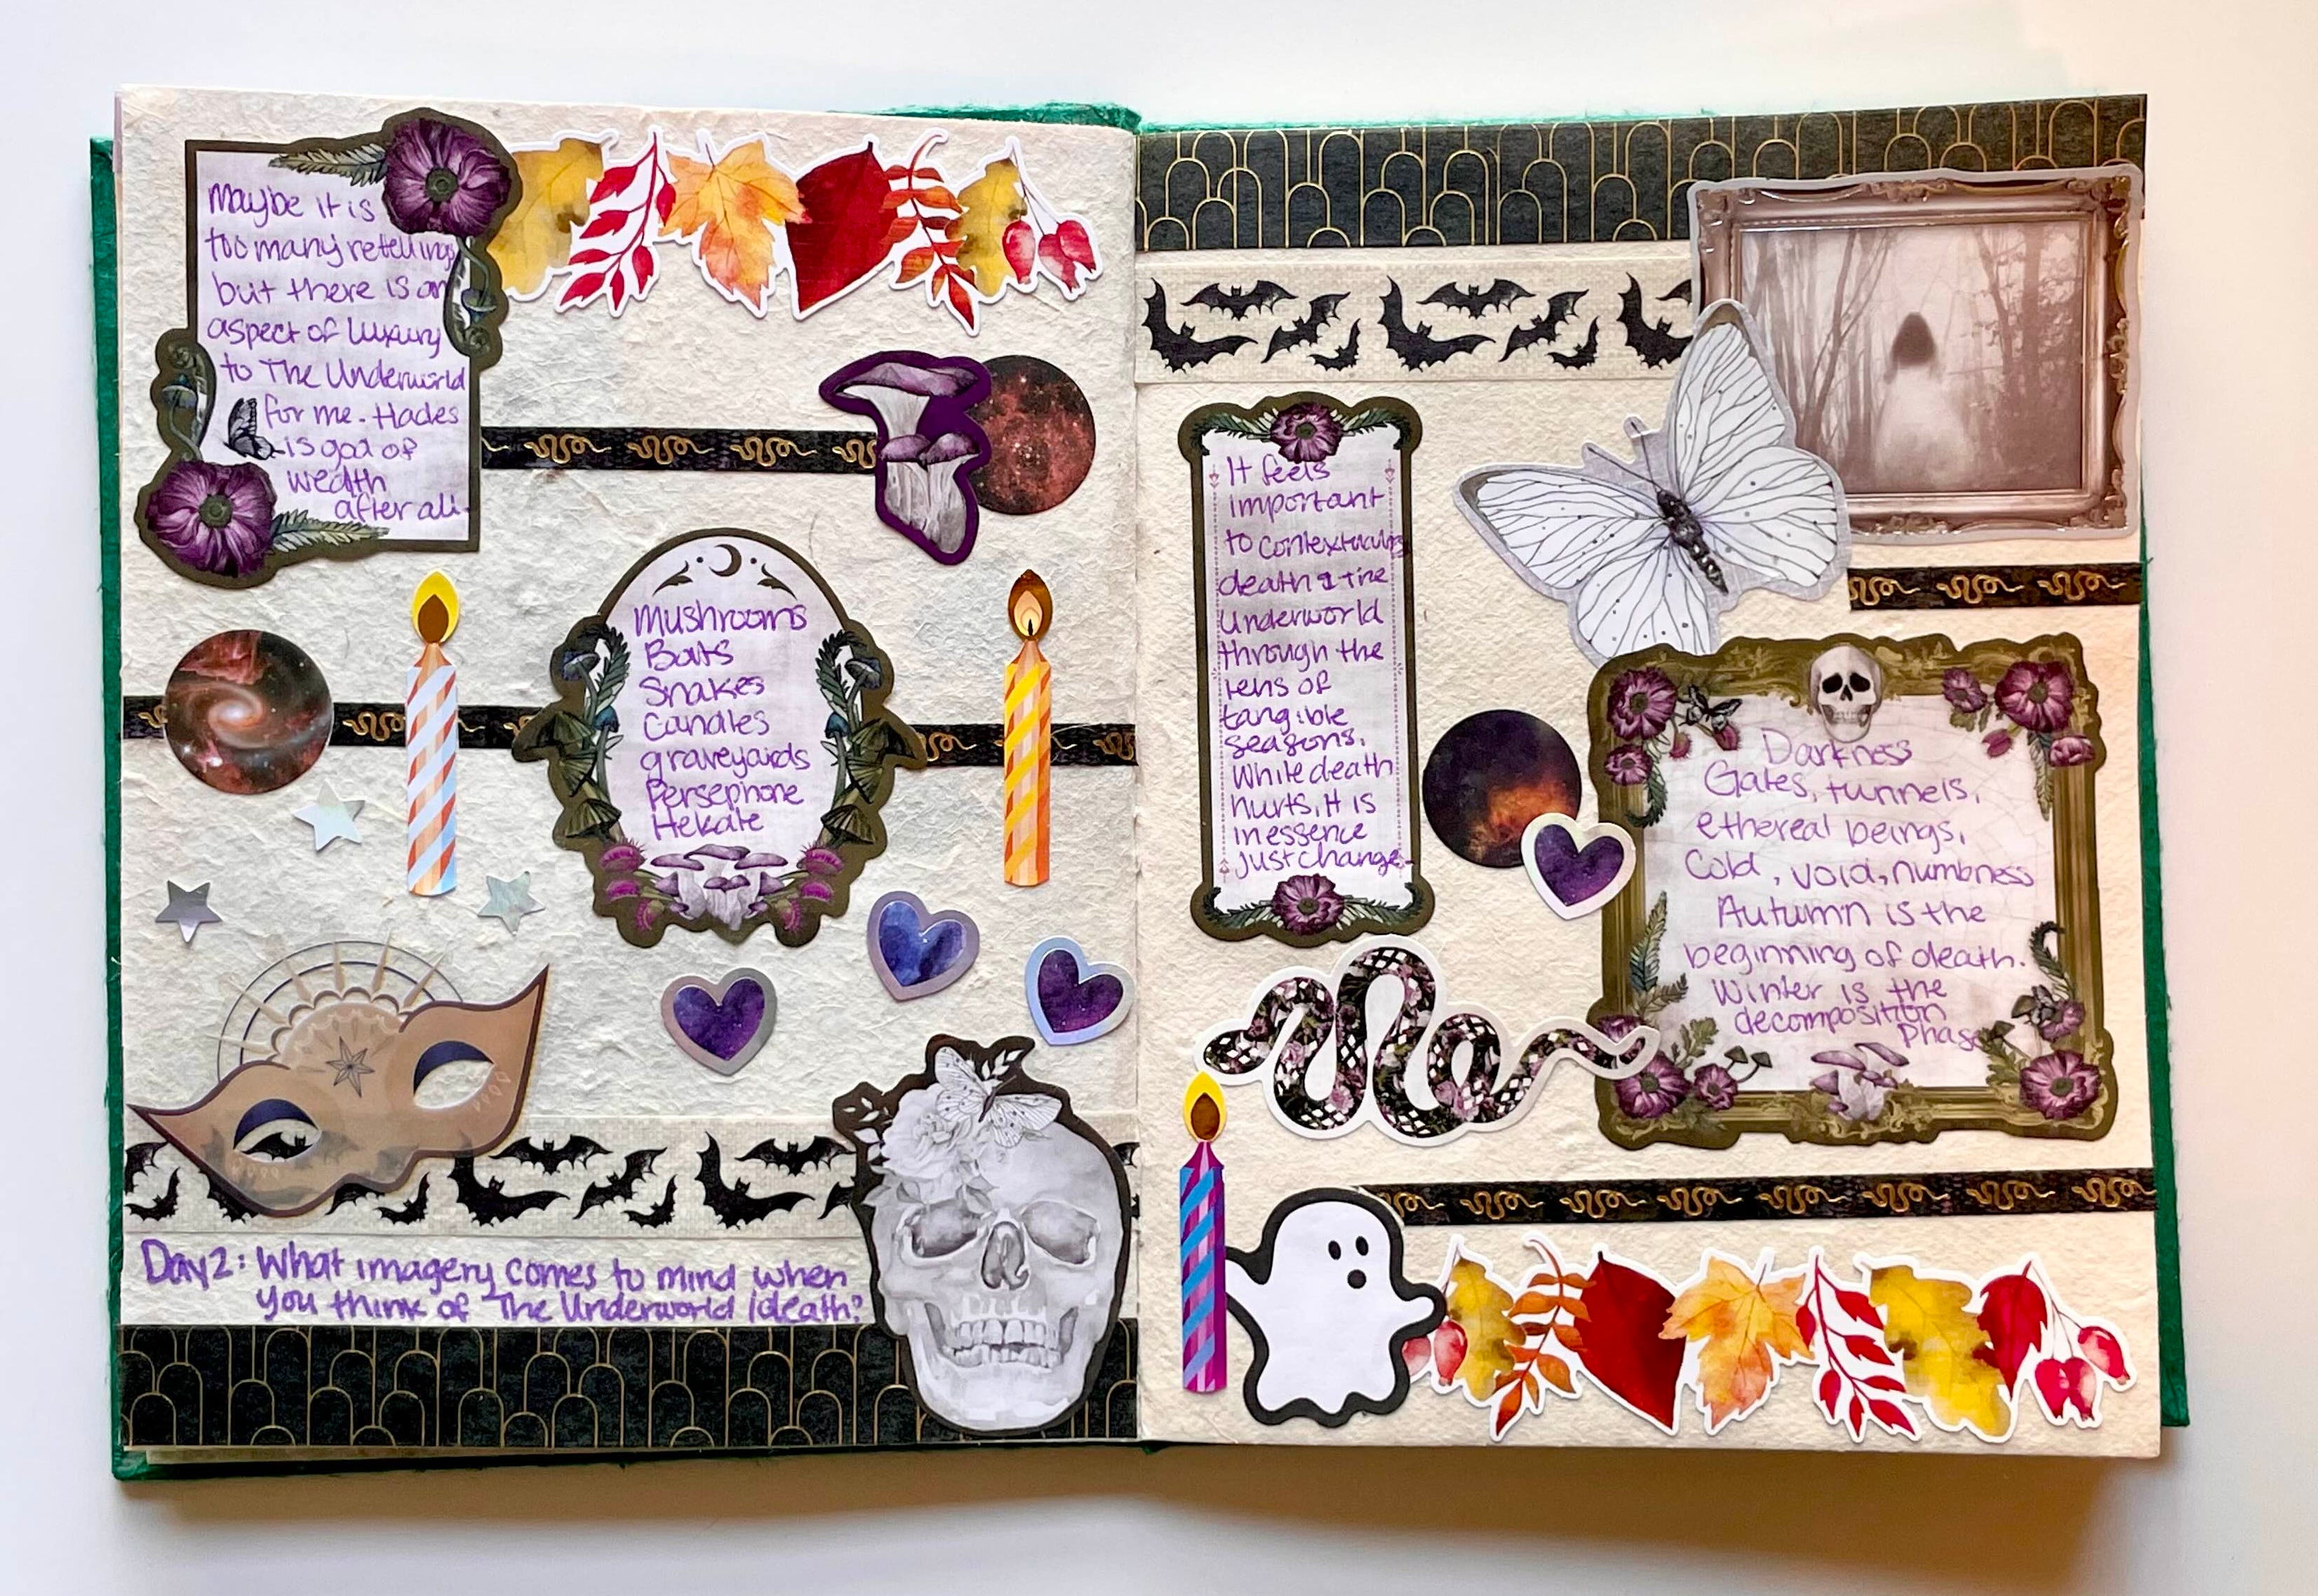 Maybe it is
too many retellings
but there is an
aspect of luxury
to The Underworld
for me. Hades
is god of
wealth
after all.
Mushrooms
Bats
Snakes
Candles
graveyards
Persephone
Hekate
Day 2: What imagery comes to mind when
you think of The Underworld/death?
It feels
important
to contextualize
death & the
Underworld
through the
lens of
tangible
seasons.
While death
hurts, it is
in essence
just change.
Darkness
Gates, tunnels,
ethereal beings,
Cold, void, numbness
Autumn is the
beginning of death.
Winter is the
decomposition
Phase